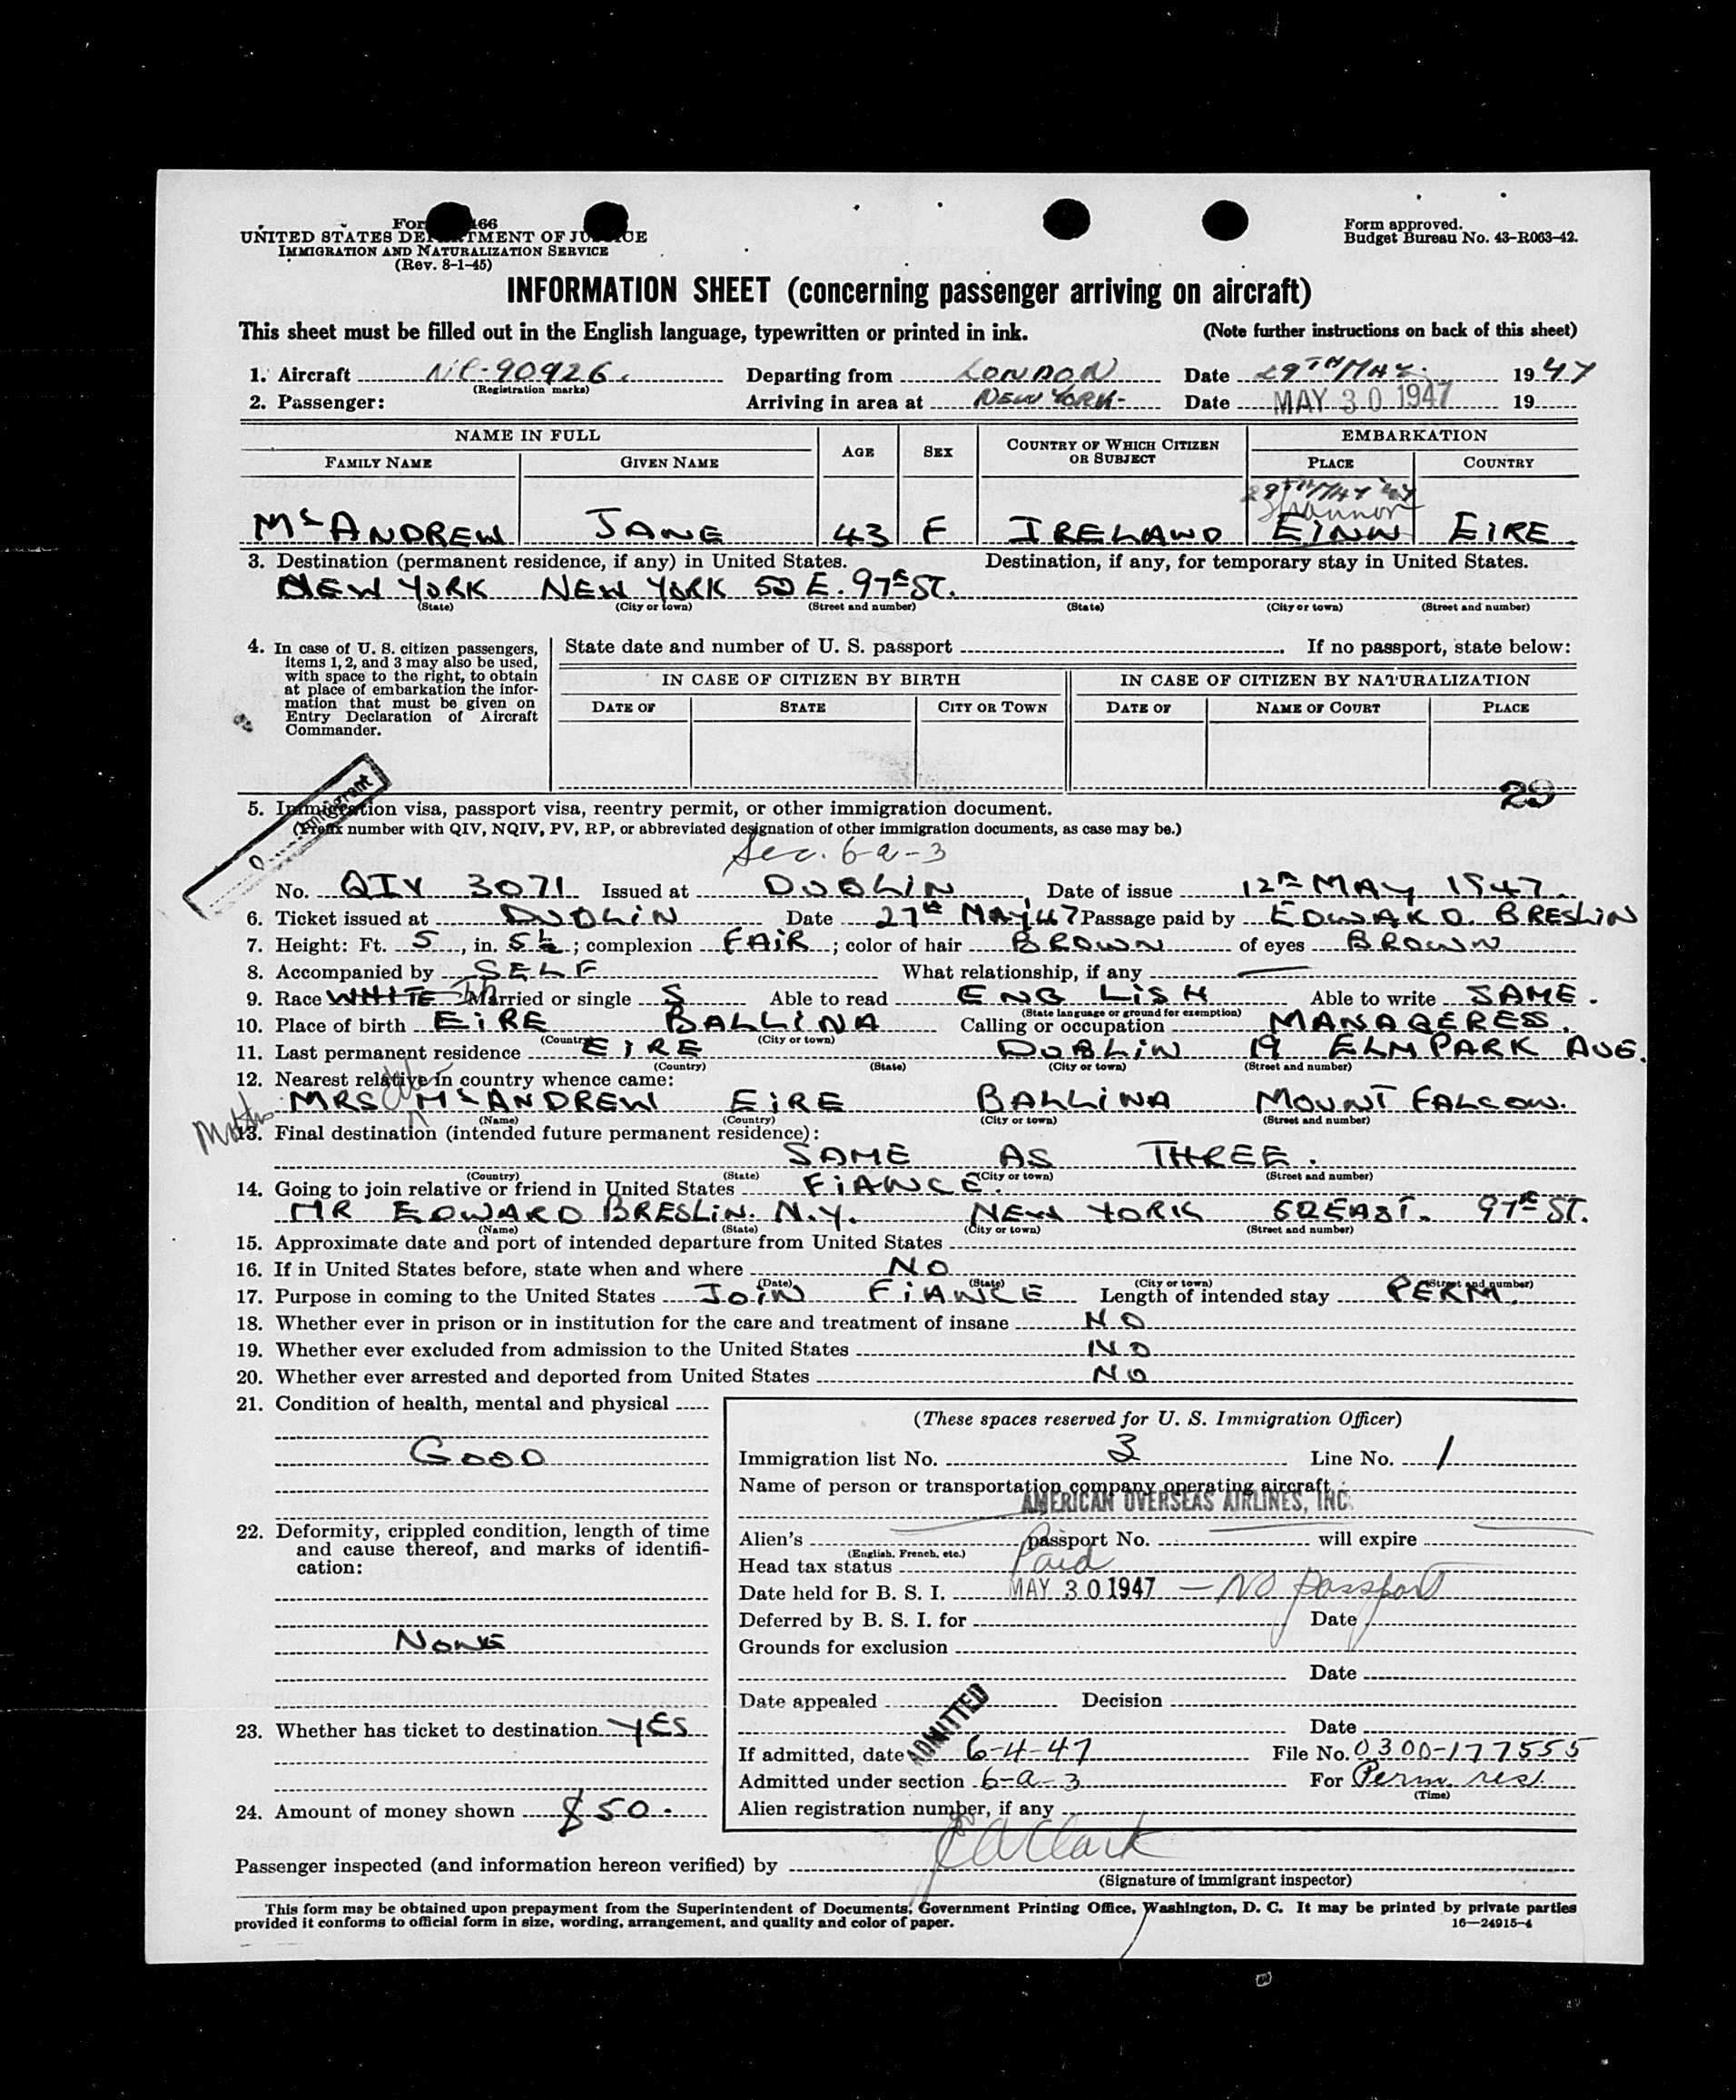 UNITED STATES DEPARTMENT OF JUSTICE
IMMIGRATION AND NATURALIZATION SERVICE
(Rev. 8-1-45)
Form approved.
Budget Bureau No. 43-R063-42.
INFORMATION SHEET (concerning passenger arriving on aircraft)
This sheet must be filled out in the English language, typewritten or printed in ink. (Note further instructions on back of this sheet)
1. Aircraft NC-90926. Departing from LONDON Date 29TH MAY. 1947
(Registration marks)
2. Passenger: Arriving in area at NEW YORK- Date MAY 30 1947 19
NAME IN FULL AGE SEX COUNTRY OF WHICH CITIZEN OR SUBJECT EMBARKATION
FAMILY NAME GIVEN NAME PLACE COUNTRY
29TH MAY 47
Shannon
McANDREW JANE 43 F IRELAND EINN EIRE.
3. Destination (permanent residence, if any) in United States. Destination, if any, for temporary stay in United States.
NEW YORK NEW YORK 52 E. 97TH ST.
(State) (City or town) (Street and number) (State) (City or town) (Street and number)
4. In case of U. S. citizen passengers, items 1, 2, and 3 may also be used, with space to the right, to obtain at place of embarkation the information that must be given on Entry Declaration of Aircraft Commander.
State date and number of U. S. passport . If no passport, state below:
IN CASE OF CITIZEN BY BIRTH IN CASE OF CITIZEN BY NATURALIZATION
DATE OF STATE CITY OR TOWN DATE OF NAME OF COURT PLACE
29
5. Immigration visa, passport visa, reentry permit, or other immigration document.
(Prefix number with QIV, NQIV, PV, RP, or abbreviated designation of other immigration documents, as case may be.)
Immigrant
Sec. 6-a-3
No. QIV 3071 Issued at DUBLIN Date of issue 12TH MAY 1947.
6. Ticket issued at DUBLIN Date 27TH MAY 47 Passage paid by EDWARD. BRESLIN
7. Height: Ft. 5, in. 5½; complexion FAIR; color of hair BROWN of eyes BROWN
8. Accompanied by SELF What relationship, if any —
9. Race WHITE Irh Married or single S Able to read ENGLISH Able to write SAME.
(State language or ground for exemption)
10. Place of birth EIRE BALLINA Calling or occupation MANAGERESS.
(Country) (City or town)
11. Last permanent residence EIRE DUBLIN 19 ELMPARK AVE.
(Country) (State) (City or town) (Street and number)
12. Nearest relative in country whence came:
Mother MRS McANDREW EIRE BALLINA MOUNT FALCON.
(Name) (Country) (City or town) (Street and number)
13. Final destination (intended future permanent residence):
SAME AS THREE.
(Country) (State) (City or town) (Street and number)
14. Going to join relative or friend in United States FIANCE.
MR EDWARD BRESLIN. N.Y. NEW YORK 52 EAST. 97TH ST.
(Name) (State) (City or town) (Street and number)
15. Approximate date and port of intended departure from United States
16. If in United States before, state when and where NO
(Date) (State) (City or town) (Street and number)
17. Purpose in coming to the United States JOIN FIANCE Length of intended stay PERM.
18. Whether ever in prison or in institution for the care and treatment of insane NO
19. Whether ever excluded from admission to the United States NO
20. Whether ever arrested and deported from United States NO
21. Condition of health, mental and physical
GOOD
22. Deformity, crippled condition, length of time and cause thereof, and marks of identification:
NONE
23. Whether has ticket to destination YES
24. Amount of money shown $50.
(These spaces reserved for U. S. Immigration Officer)
Immigration list No. 3 Line No. 1
Name of person or transportation company operating aircraft
AMERICAN OVERSEAS AIRLINES, INC.
Alien's passport No. will expire
(English, French, etc.)
Head tax status Paid
Date held for B. S. I. MAY 30 1947 — NO passport
Deferred by B. S. I. for Date
Grounds for exclusion
Date
Date appealed Decision
Date
ADMITTED
If admitted, date 6-4-47 File No. 0300-177555
Admitted under section 6-a-3 For Perm. res.
(Time)
Alien registration number, if any
Passenger inspected (and information hereon verified) by J A Clark
(Signature of immigrant inspector)
This form may be obtained upon prepayment from the Superintendent of Documents, Government Printing Office, Washington, D. C. It may be printed by private parties
provided it conforms to official form in size, wording, arrangement, and quality and color of paper. 16—24915-4